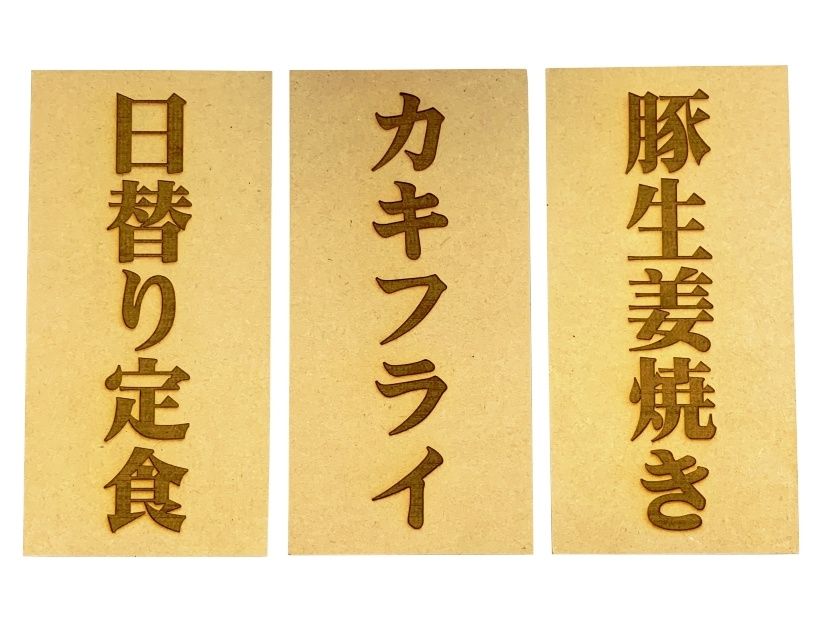 日替り定食
カキフライ
豚生姜焼き